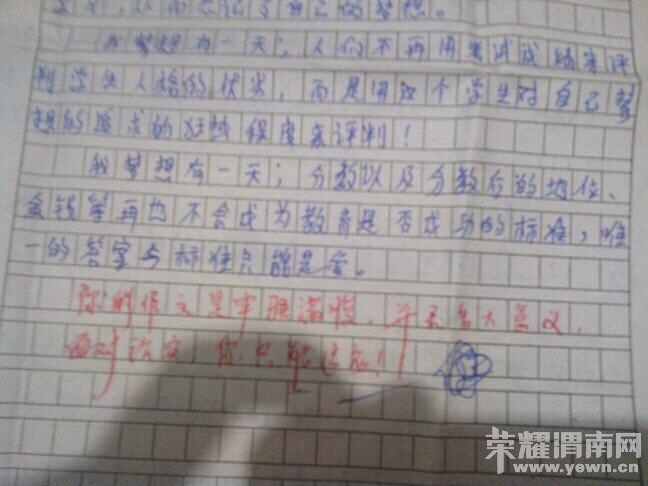 梦想。
我梦想有一天；人们不再用考试成绩来评
判学生人格的优劣，而是用这个学生对自己梦
想的追求的狂热程度来评判！
我梦想有一天；分数以及分数后的地位、
金钱等再也不会成为教育是否成功的标准，唯
一的答案与标准只能是爱。
你的作文是牢骚满腹，并无多大意义，
面对现实，你只能适应！
荣耀渭南网
www.yewn.cn